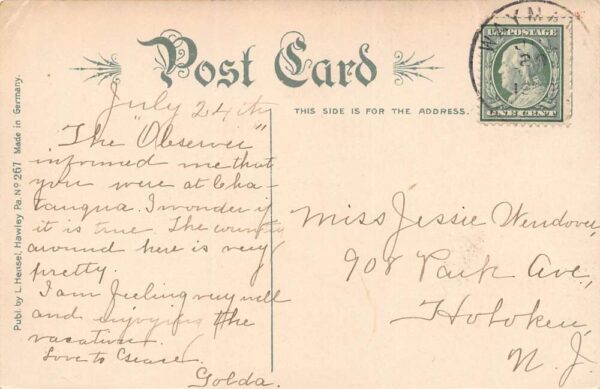 Post Card
THIS SIDE IS FOR THE ADDRESS.
Publ. by L. Hensel, Hawley Pa. No 267 Made in Germany.
WAYMA
U.S. POSTAGE
ONE CENT
July 24th
The "Observer"
informed me that
you were at Cha-
tauqua. I wonder if
it is true. The country
around here is very
pretty.
I am feeling very well
and enjoying the
vacation.
Love to
Golda.
Miss Jessie Wendover,
908 Park Ave,
Hoboken,
N. J.